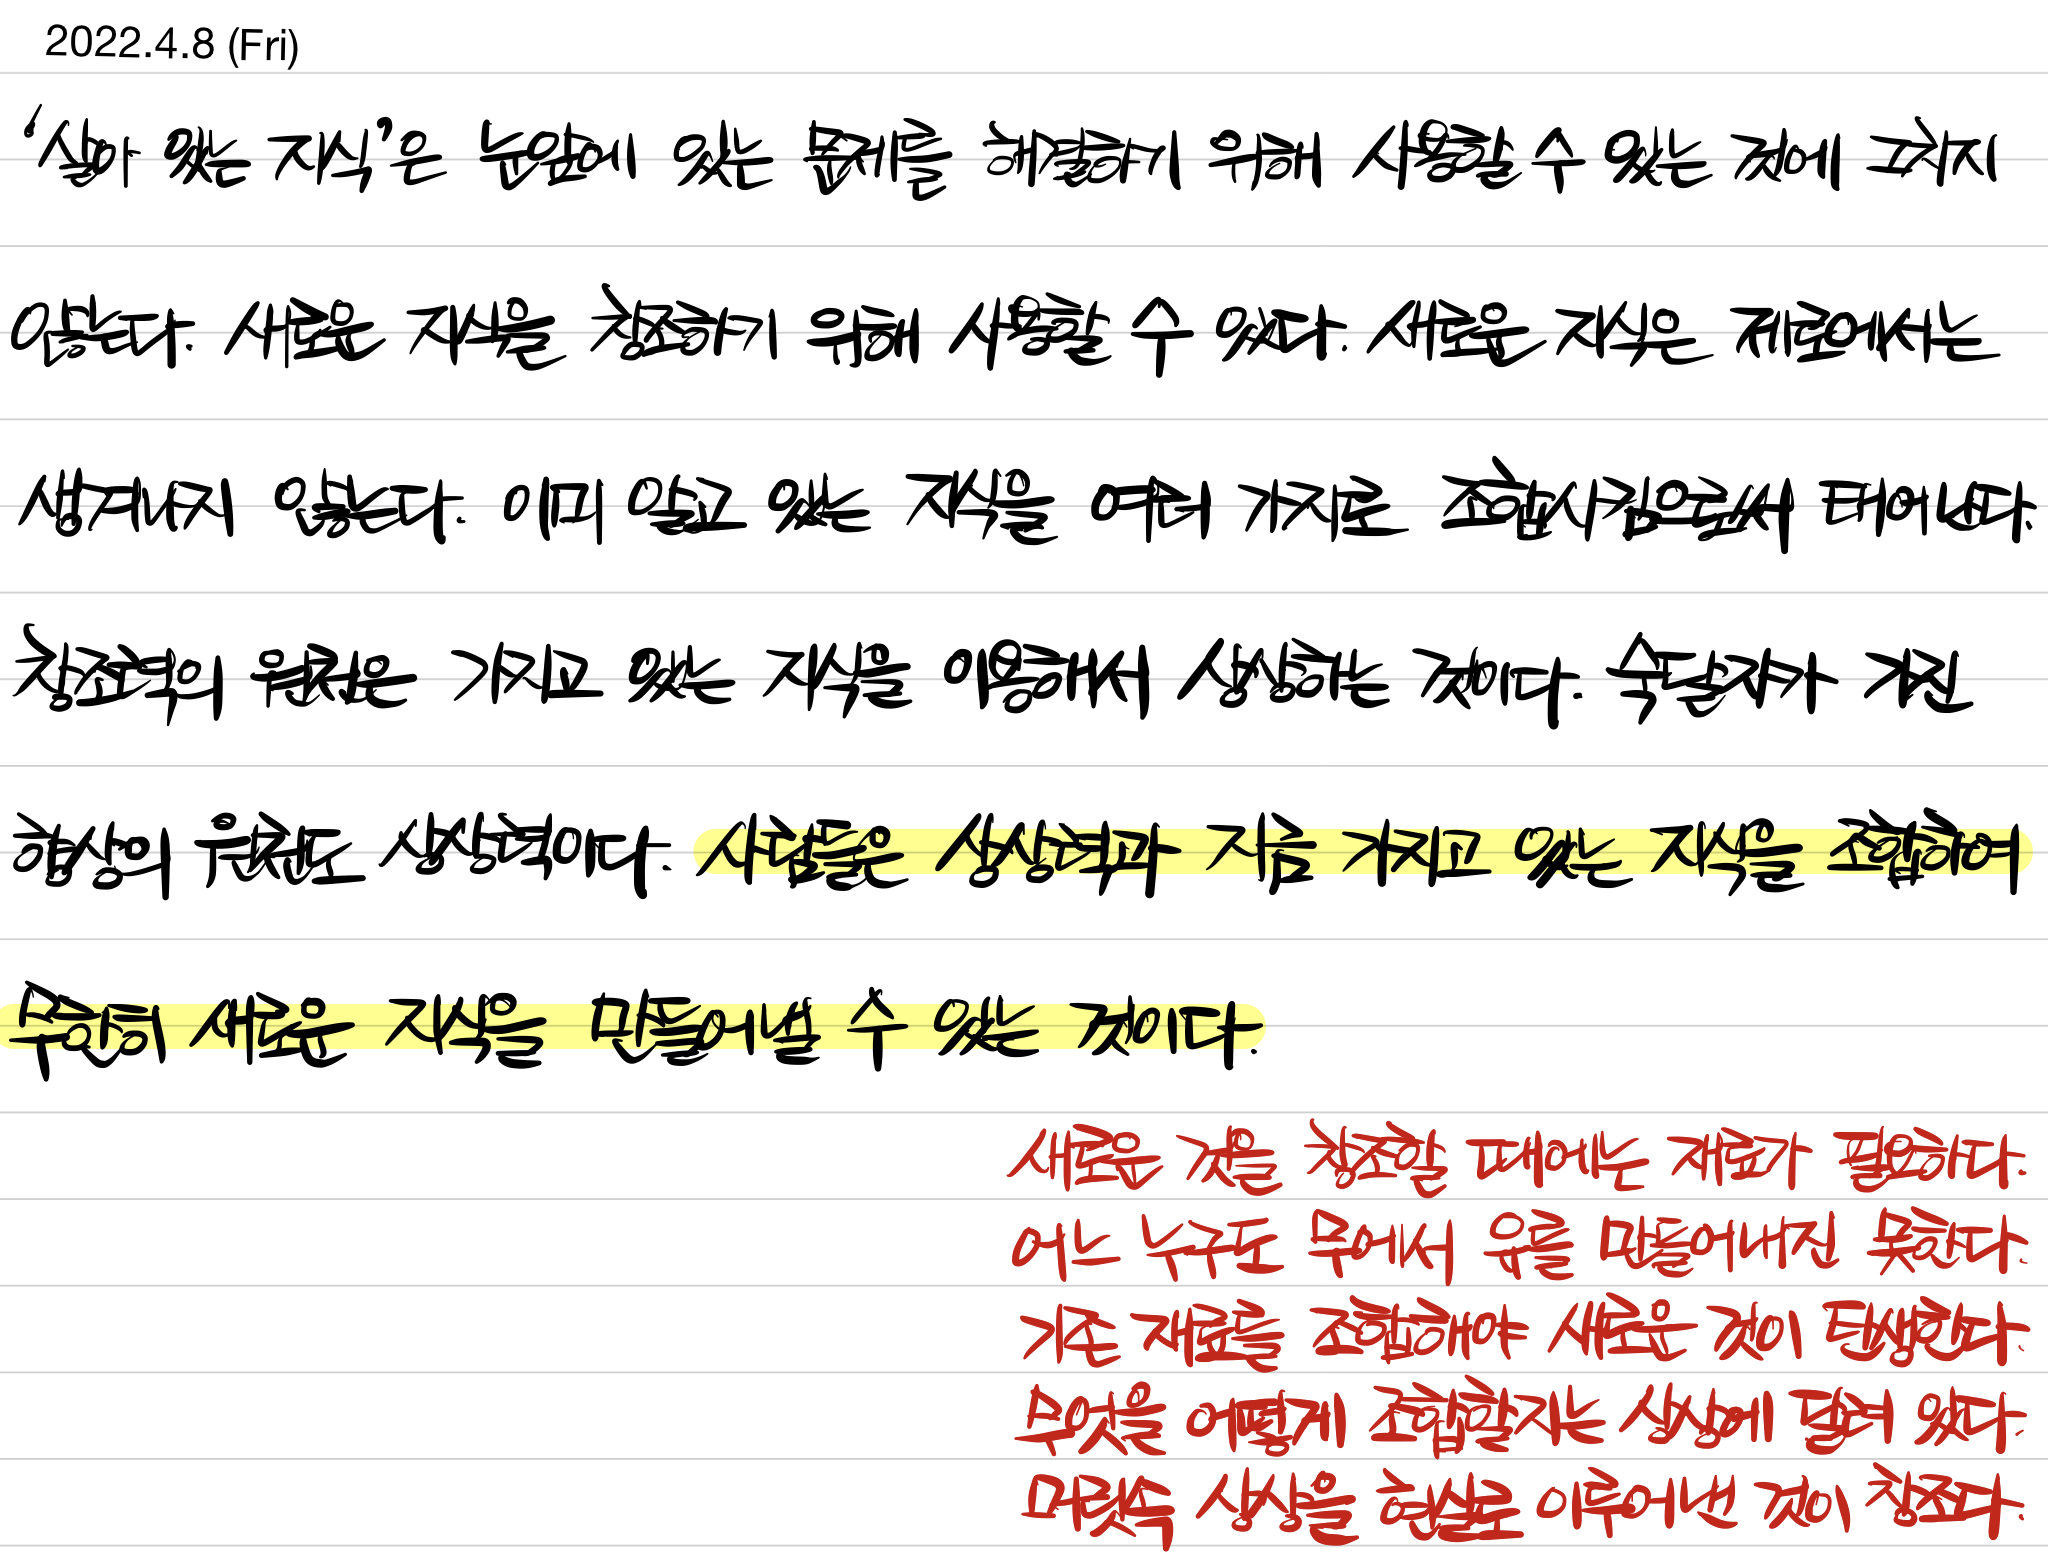 2022.4.8 (Fri)
'살아 있는 지식'은 눈앞에 있는 문제를 해결하기 위해 사용할 수 있는 것에 그치지
않는다. 새로운 지식을 창조하기 위해 사용할 수 있다. 새로운 지식은 제로에서는
생겨나지 않는다. 이미 알고 있는 지식을 여러 가지로 조합시킴으로써 태어난다.
창조력의 원천은 가지고 있는 지식을 이용해서 상상하는 것이다. 숙달자가 가진
향상의 원천도 상상력이다. 사람들은 상상력과 지금 가지고 있는 지식을 조합하여
무한히 새로운 지식을 만들어낼 수 있는 것이다.
새로운 것을 창조할 때에는 재료가 필요하다.
어느 누구도 무에서 유를 만들어내진 못한다.
기존 재료를 조합해야 새로운 것이 탄생한다.
무엇을 어떻게 조합할지는 상상에 달려 있다.
머릿속 상상을 현실로 이루어낸 것이 창조다.